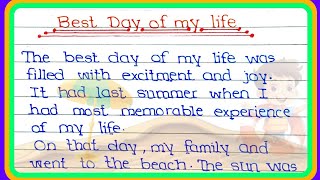 Best Day of my life
The best day of my life was
filled with excitment and joy.
It had last summer when I
had most memorable experience
of my life.
On that day, my family and
went to the beach. The sun was